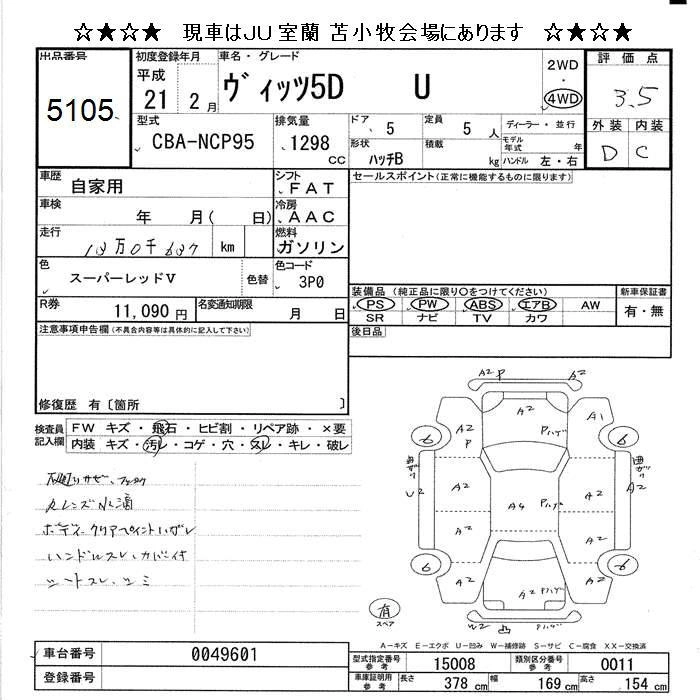 ☆★☆★ 現車はJU室蘭 苫小牧会場にあります ☆★☆★
出品番号
5105
初度登録年月
平成
21 2月
車名・グレード
ヴィッツ5D U
2WD
・
4WD
評価点
3.5
外装 内装
D C
型式
CBA-NCP95
排気量
1298
CC
ドア
5
定員
5 人
形状
ハッチB
積載
kg
ディーラー・並行
モデル年式
年
ハンドル 左・右
車歴
自家用
シフト
FAT
車検
年 月( 日)
冷房
AAC
走行
km
燃料
ガソリン
色
スーパーレッドV
色替
色コード
3P0
R券
11,090 円
名変通知期限
月 日
セールスポイント(正常に機能するものに限ります)
装備品(純正品に限り○をつけてください)
PS PW ABS エアB AW
SR ナビ TV カワ
新車保証書
有・無
後日品
注意事項申告欄(不具合内容等は具体的に記入して下さい)
修復歴 有〔箇所 〕
検査員記入欄
FW キズ・飛石・ヒビ割・リペア跡・×要
内装 キズ・汚レ・コゲ・穴・スレ・キレ・破レ
レンズ水滴
ボデークリアペイントハガレ
ハンドルスレ、カバー付
シートスレ、シミ
A2 P A2
A2
P
A2
Pハゲ
A1
6 6
曲ガリ
U2
A2
A4
Pハゲ
A2
曲ガリ
A2
A2
A2
6 6
A2
A2 Pハゲ
A2
W2 凸 Pハゲ
有
スペア
A-キズ E-エクボ U-凹み W-補修跡 S-サビ C-腐食 XX-交換済
車台番号
0049601
登録番号
型式指定番号
参考
15008
類別区分番号
参考
0011
車庫証明用
参考
長さ
378 cm
幅
169 cm
高さ
154 cm